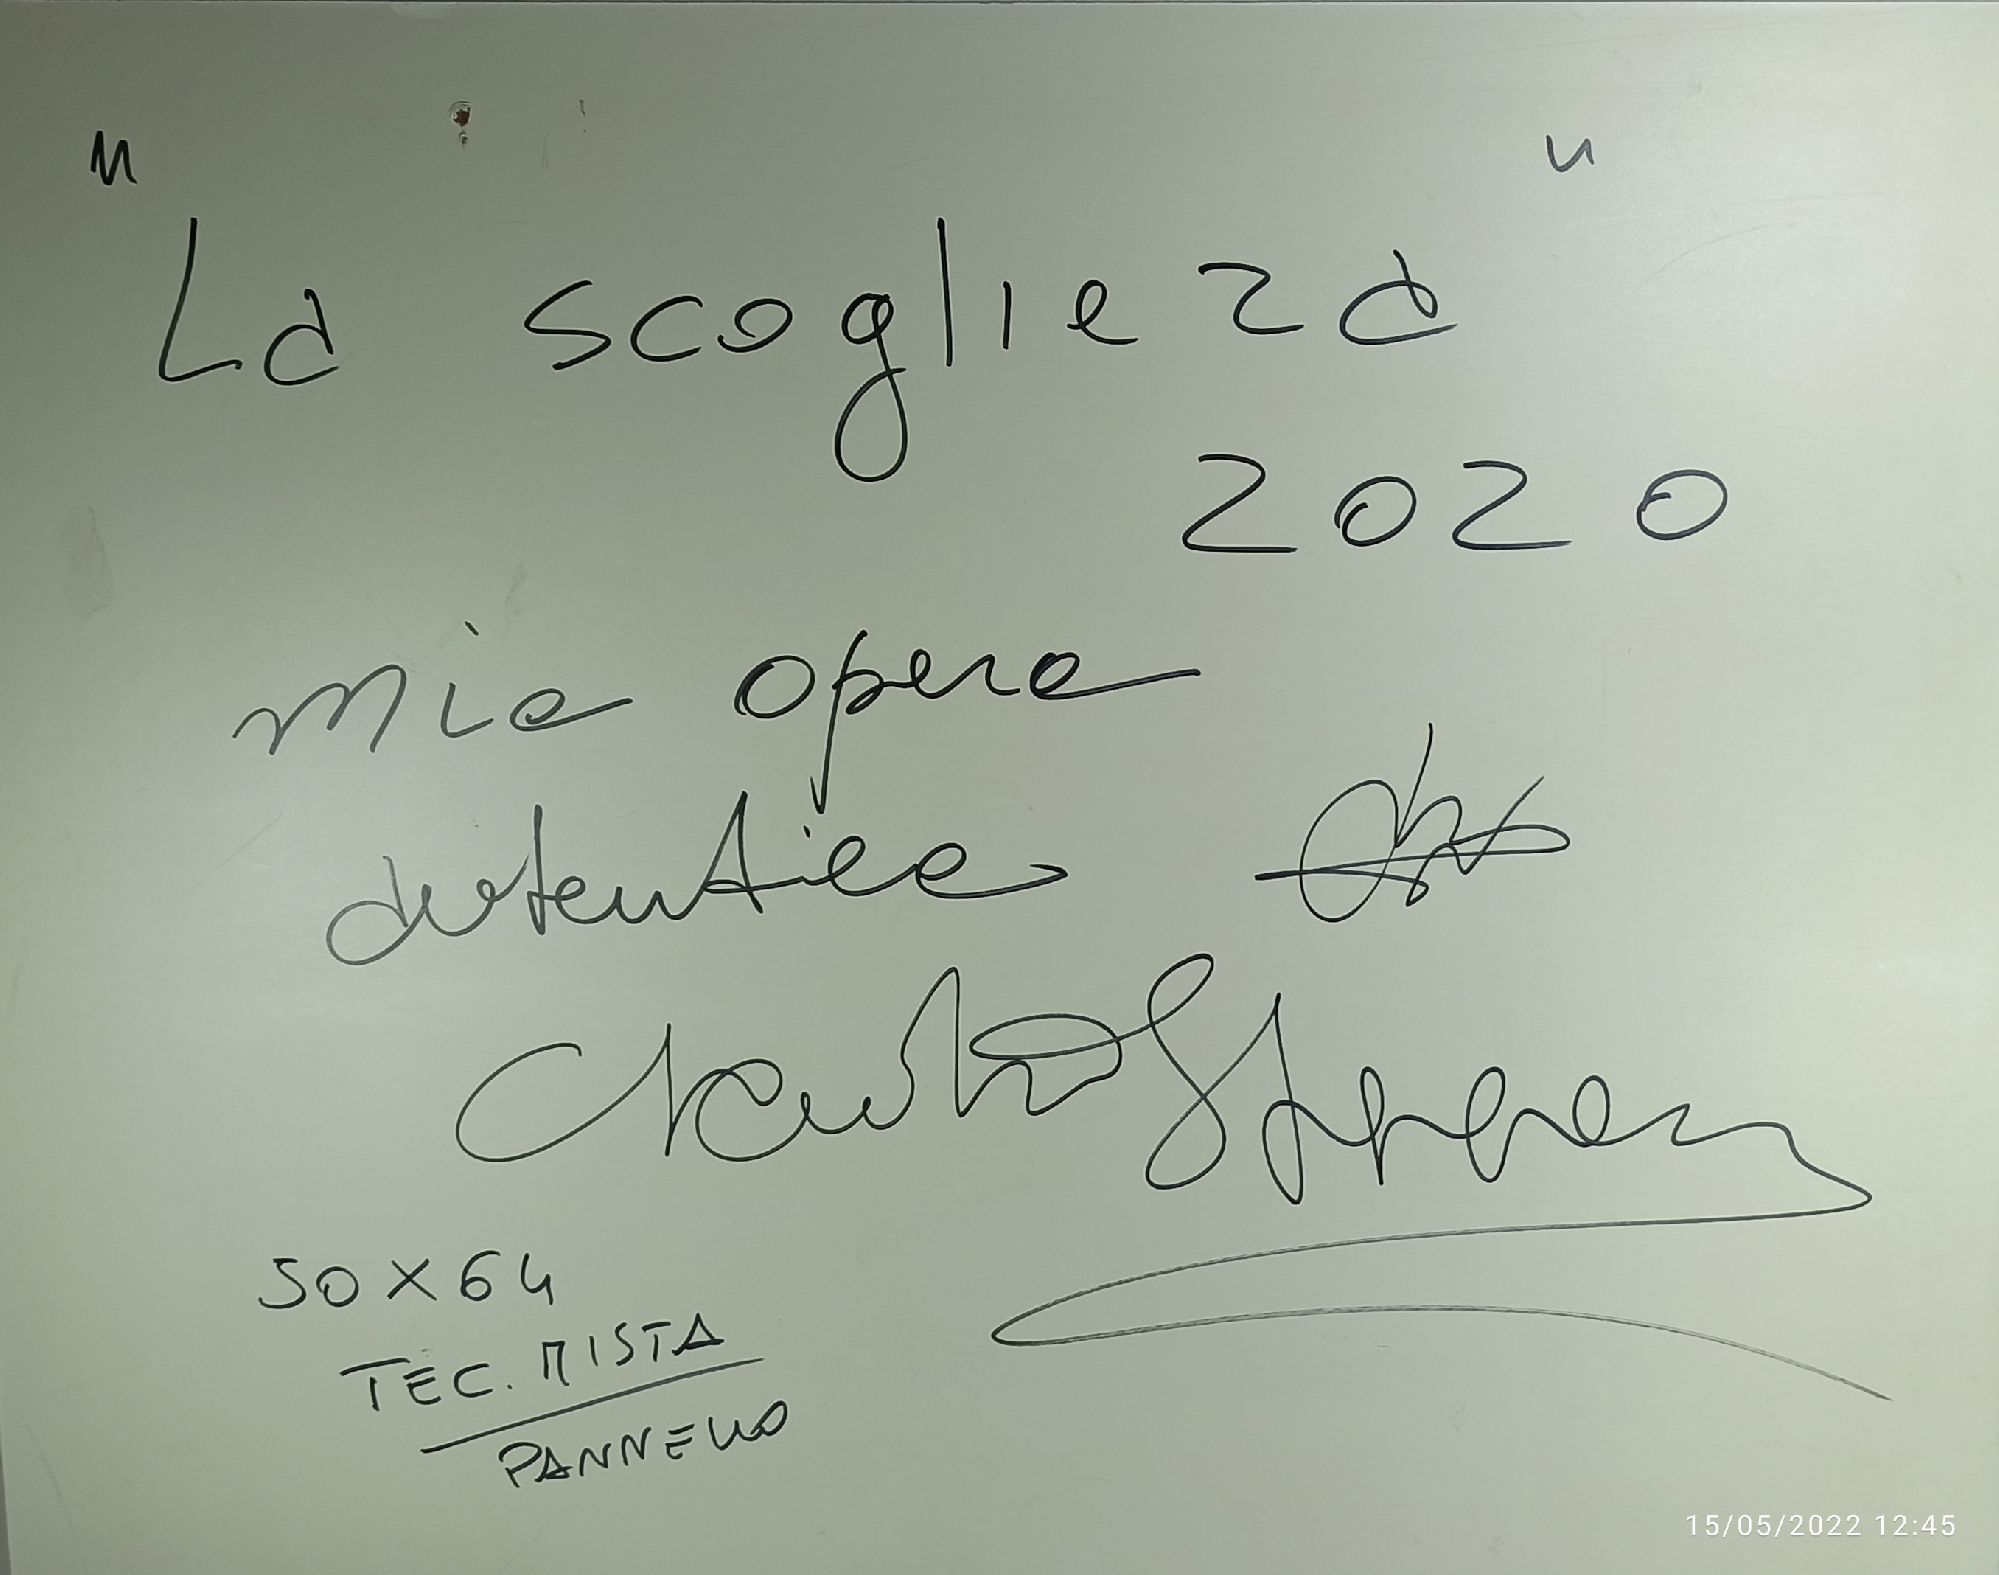 "La scogliera"
2020
mia opera
autentica
50 x 64
TEC. MISTA
PANNELLO
15/05/2022 12:45